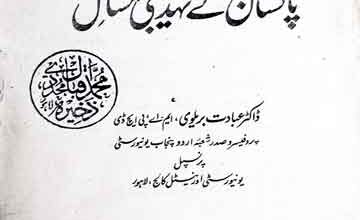 پاکستان کے تہذیبی مسائل
ڈاکٹر عبادت بریلوی، ایم۔اے، پی ایچ ڈی
پروفیسر و صدر شعبۂ اردو پنجاب یونیورسٹی
پرنسپل
یونیورسٹی اورینٹل کالج، لاہور
محمد اقبال مجددی
ذخیرہ